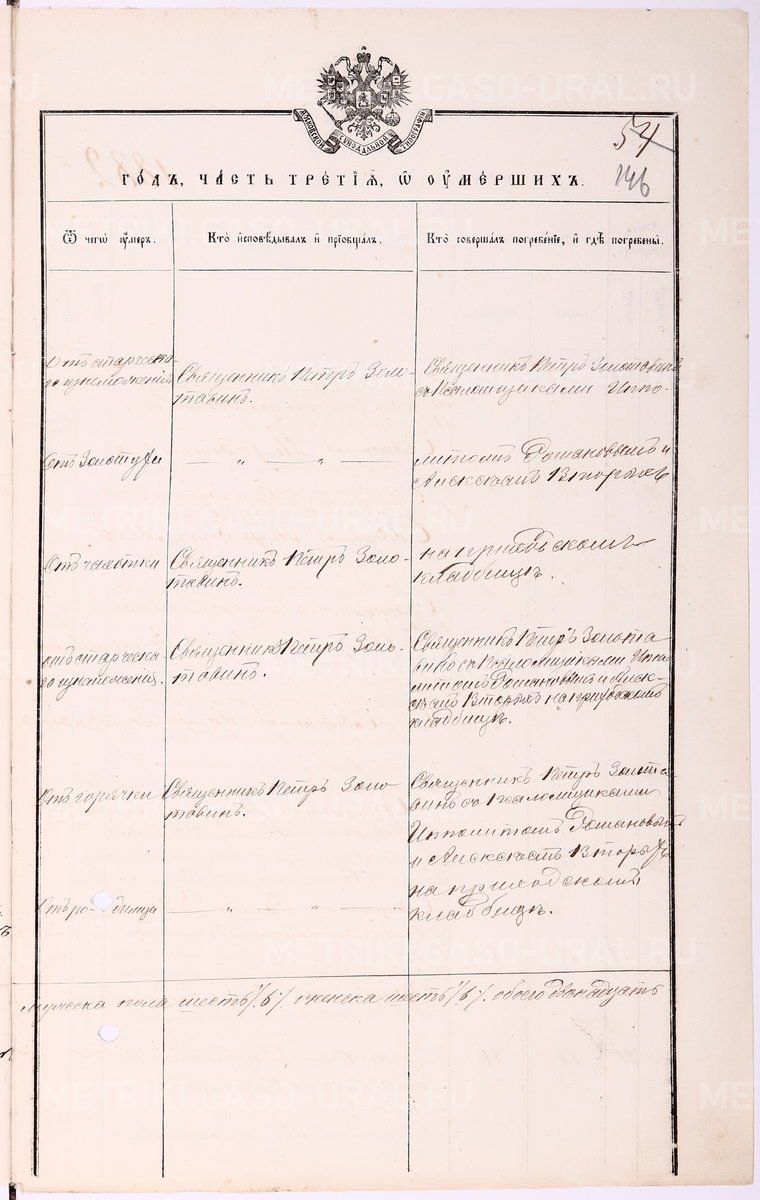 МОСКОВСКОЙ СѴНОДАЛЬНОЙ ТИПОГРАФІИ
54
146
ГО́ДЪ, ЧА́СТЬ ТРЕ́ТІѦ, Ѡ҆ ОУ҆МЕ́РШИХЪ.
Ѿ чегѡ̀ оу҆́меръ.
Кто̀ и҆сповѣ́дывалъ и҆ прїѡбща́лъ.
Кто̀ соверша́лъ погребе́нїе, и҆ гдѣ̀ погребены̀.
Отъ старческа-
го изнеможенія
Священникъ Петръ Золо-
тавинъ.
Священникъ Петръ Золотавинъ
съ Псаломщиками Иппо-
Отъ Золотухи
— „ — „ —
литомъ Романовымъ и
Алексѣемъ Вторыхъ
Отъ чахотки
Священникъ Петръ Золо-
тавинъ.
на приходскомъ
кладбищѣ.
отъ старческа-
го изнеможенія.
Священникъ Петръ Золо-
тавинъ.
Священникъ Петръ Золота
винъ съ Псаломщиками Иппо
литомъ Романовымъ и Алек-
сѣемъ Вторыхъ на приходскомъ
кладбищѣ.
Отъ горячки
Священникъ Петръ Золо
тавинъ.
Священникъ Петръ Золота
винъ съ Псаломщиками
Ипполитомъ Романовымъ
и Алексѣемъ Вторыхъ
на приходскомъ
кладбищѣ.
Отъ родимца
— „ — „ —
мужеска пола шесть /.6./. женска шесть /.6./. обоего двенадцать
METRIKI.GASO-URAL.RU